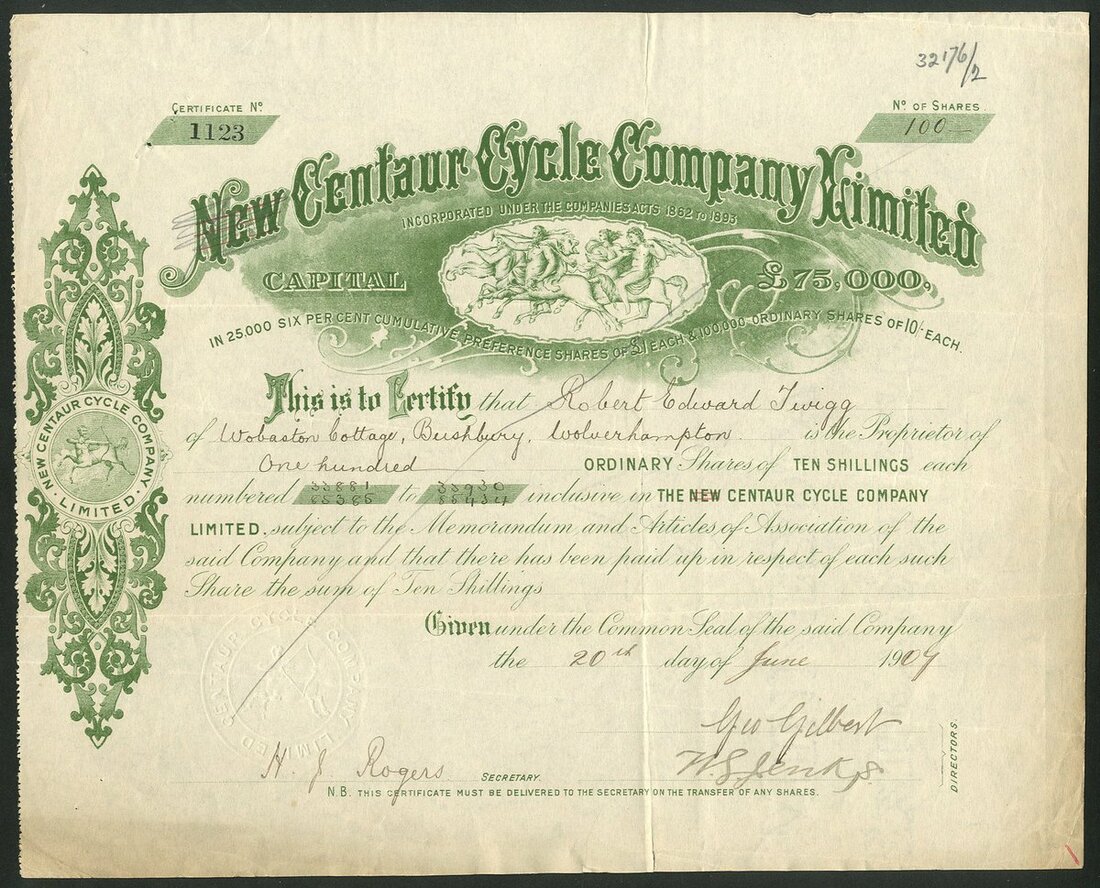 32176/2
CERTIFICATE Nº
1123
Nº OF SHARES.
100
New Centaur Cycle Company Limited
INCORPORATED UNDER THE COMPANIES ACTS 1862 TO 1893
CAPITAL £75,000,
IN 25,000 SIX PER CENT CUMULATIVE PREFERENCE SHARES OF £1 EACH & 100,000 ORDINARY SHARES OF 10/- EACH.
This is to Certify that Robert Edward Twigg
of Wobaston Cottage, Bushbury, Wolverhampton. is the Proprietor of
One hundred ORDINARY Shares of TEN SHILLINGS each
numbered 33881 to 33930
85385 85434 inclusive in THE NEW CENTAUR CYCLE COMPANY
LIMITED, subject to the Memorandum and Articles of Association of the
said Company and that there has been paid up in respect of each such
Share the sum of Ten Shillings
Given under the Common Seal of the said Company
the 20th day of June 1907
Geo Gilbert
W. G. Jenks
DIRECTORS.
H. J. Rogers SECRETARY.
N.B. THIS CERTIFICATE MUST BE DELIVERED TO THE SECRETARY ON THE TRANSFER OF ANY SHARES.
NEW CENTAUR CYCLE COMPANY
LIMITED.
CENTAUR CYCLE COMPANY LIMITED